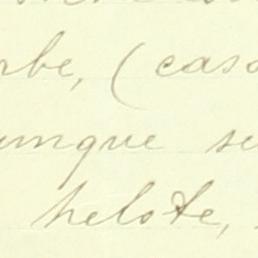 rbe, (caso
umque su
helote,